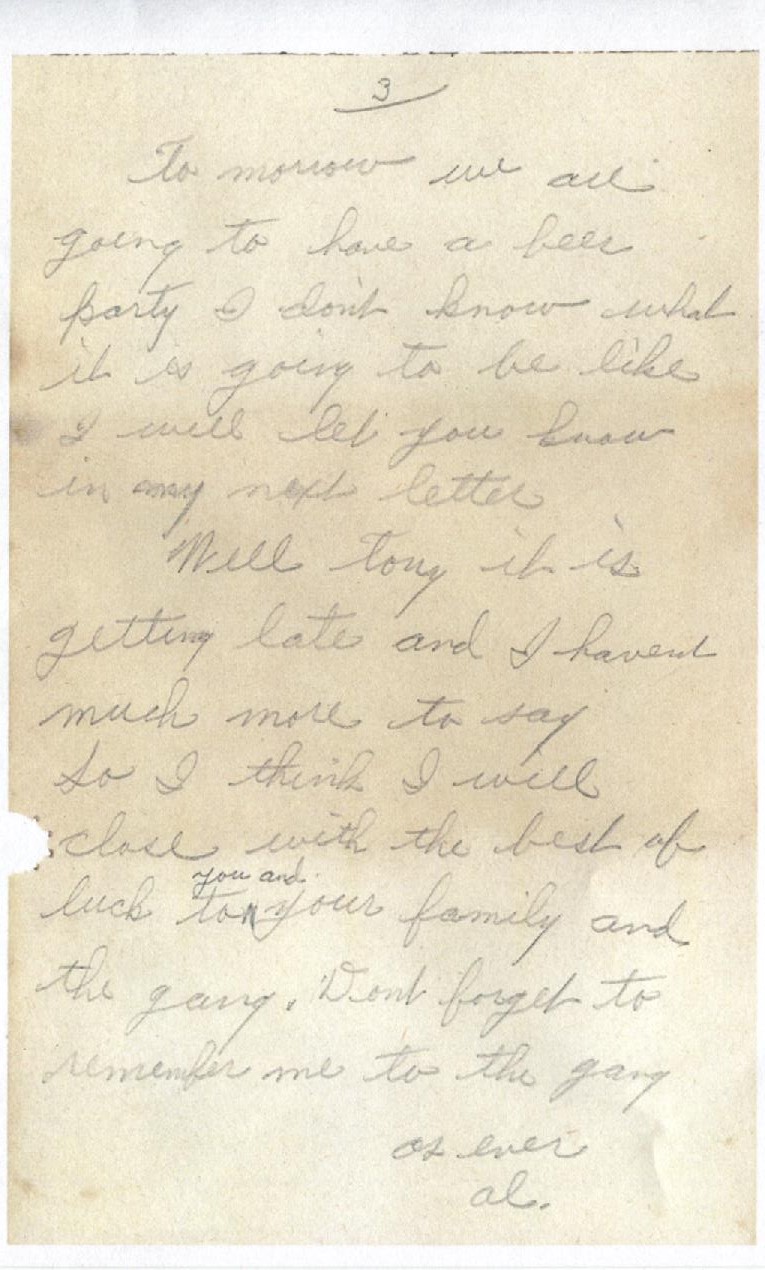 3
To morrow we are
going to have a beer
party I don't know what
it is going to be like
I will let you know
in my next letter
Well tony it is
getting late and I havent
much more to say
So I think I will
close with the best of
you and
luck to your family and
the gang. Dont forget to
remember me to the gang
as ever
al.